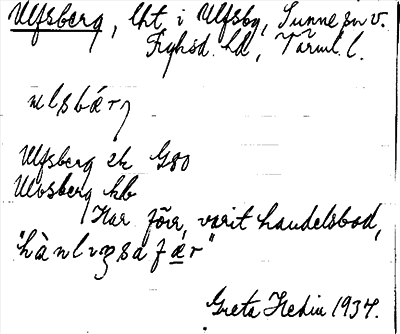 Ulfsberg, lht. i Ulfsby, Sunne sn v.
Fryksd. hd, Värml. l.
ulsbærj
Ulfsberg ek G80
Ulvsberg kb
Har förr varit handelsbod,
"hànlvgsafær"
Greta Hedin 1937.